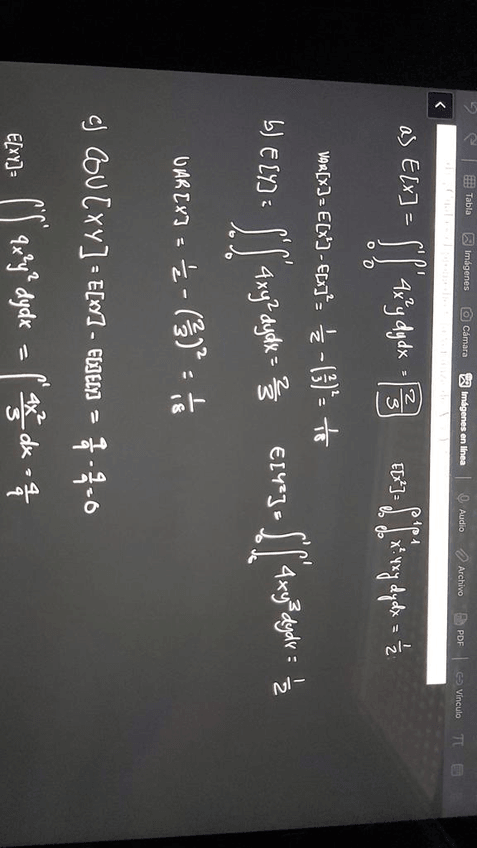 Tabla Imágenes Cámara Imágenes en línea Audio Archivo PDF Vínculo
a) E[X] = ∫₀¹∫₀¹ 4x²y dydx = 2/3 E[x²] = ∫₀¹∫₀¹ x²·4xy dydx = 1/2
VAR[X] = E[X²] - E[X]² = 1/2 - (2/3)² = 1/18
b) E[Y] = ∫₀¹∫₀¹ 4xy² dydx = 2/3 E[Y²] = ∫₀¹∫₀¹ 4xy³ dydx = 1/2
VAR[X] = 1/2 - (2/3)² = 1/18
c) COV[XY] = E[XY] - E[X]E[Y] = 4/9 - 4/9 = 0
E[XY] = ∫∫¹ 4x²y² dydx = ∫¹ 4x²/3 dx = 4/9